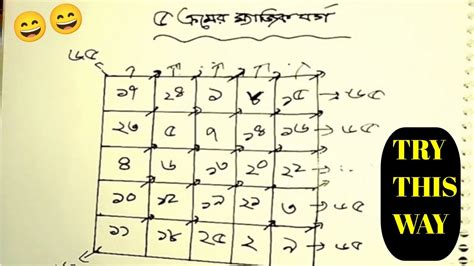 ৫ ক্রমের ম্যাজিক বর্গ
৬৫
১৭ ২৪ ১ ৮ ১৫ ৬৫
২৩ ৫ ৭ ১৪ ১৬ ৬৫
৪ ৬ ১৩ ২০ ২২
১০ ১২ ১৯ ২১ ৩ ৬৫
১১ ১৮ ২৫ ২ ৯ ৬৫
TRY
THIS
WAY